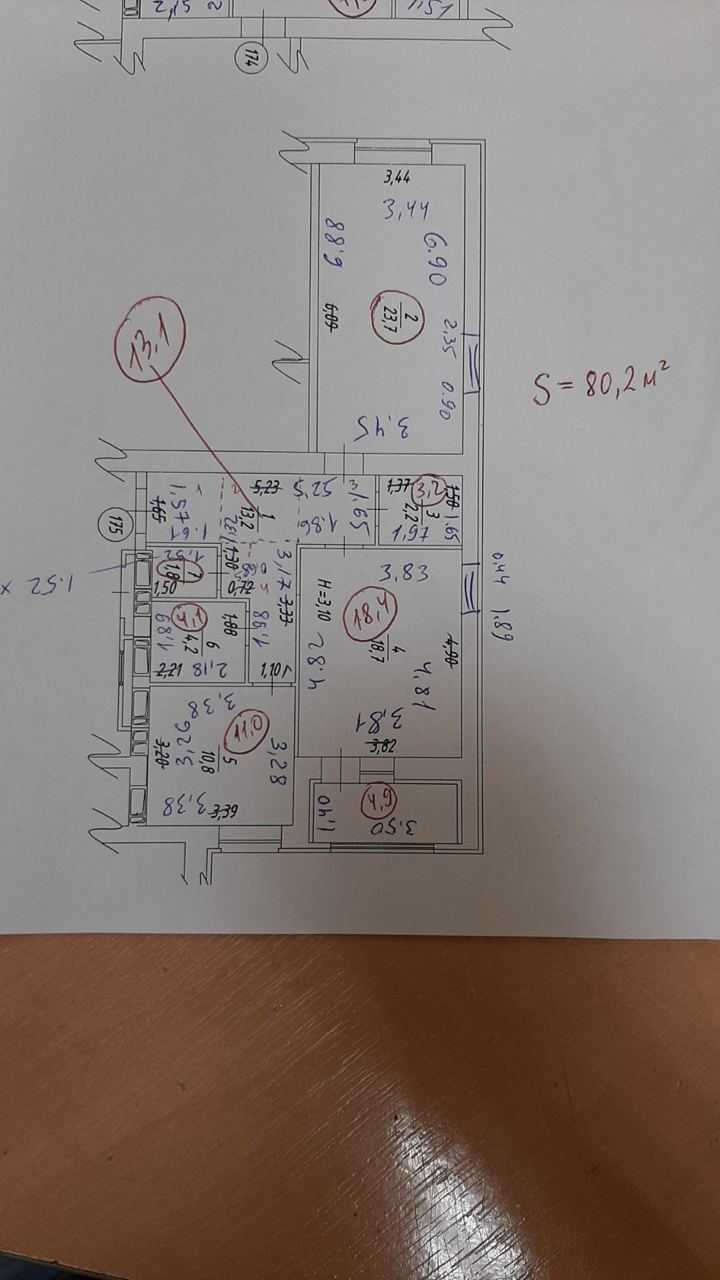 174
3,44
3,44
6.88
6.90
6,89
2
23,7
2.35
0.90
3.45
13,1
S = 80,2 м²
5,23
5.25
1,37
3,2
1,50
1,65
1.57
1.65
1
13,2
3
2,2
1,65
1.61
1.86
1,97
175
1.52
1.52 x
7
1,8
1,30
1,50
0,72
3,17
3,33
H=3,10
3.83
0,44
1,89
18,4
4
18,7
4,90
4,1
6
4,2
1.89
1,88
1,98
4.82
4,81
2,21
2,18
1,10
3,81
3,82
3,38
11,0
5
10,8
3,20
3.26
3,28
3,38
3,39
4,9
1,40
3,50